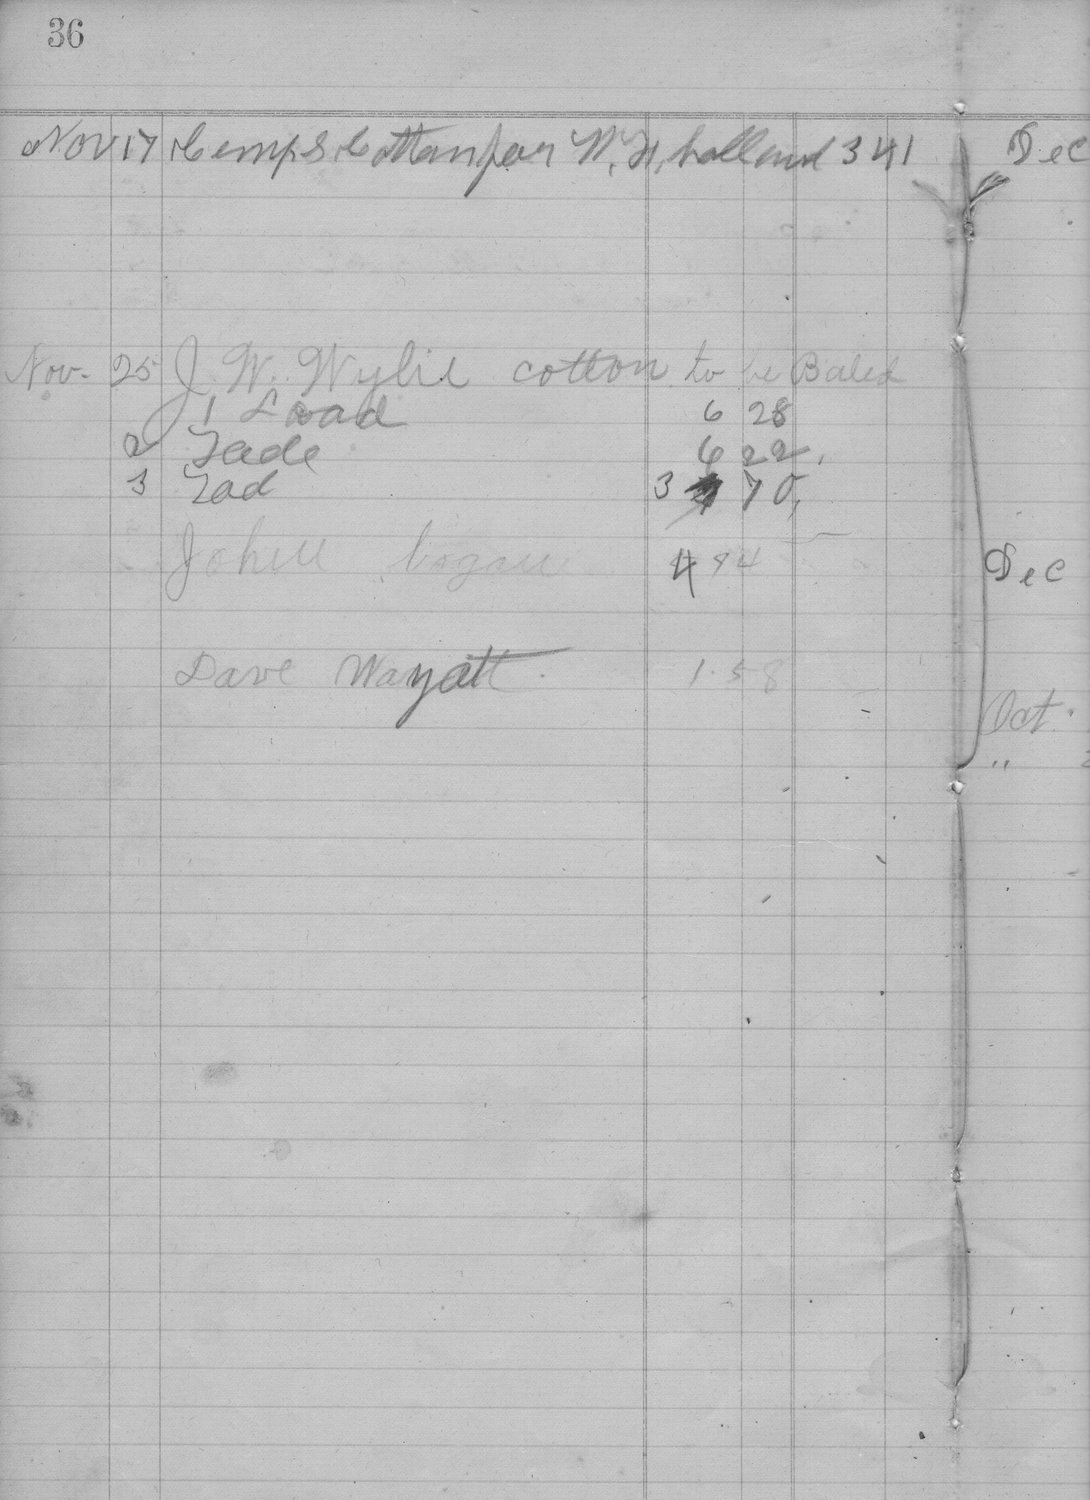 36
Nov 17 Cemps Cottan for W. H. holland 341
Nov. 25 J. W. Wylie cotton to be Baled
1 Load 6 28
2 Lade 6 22
3 Lad 3 70
John Logan 4 84
Dave Wayatt 1.58
Dec
Dec
Oct.
"